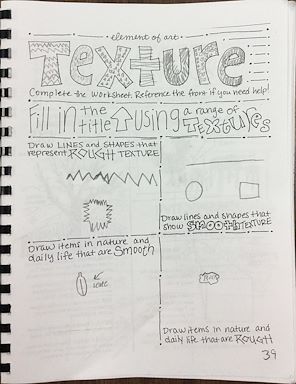 element of art
Texture
Complete the worksheet. Reference the front if you need help!
Fill in the title using a range of Textures
Draw LINES and SHAPES that
represent ROUGH TEXTURE
Draw lines and shapes that
show SMOOTH TEXTURE
Draw items in nature and
daily life that are Smooth
Draw items in nature and
daily life that are ROUGH
39